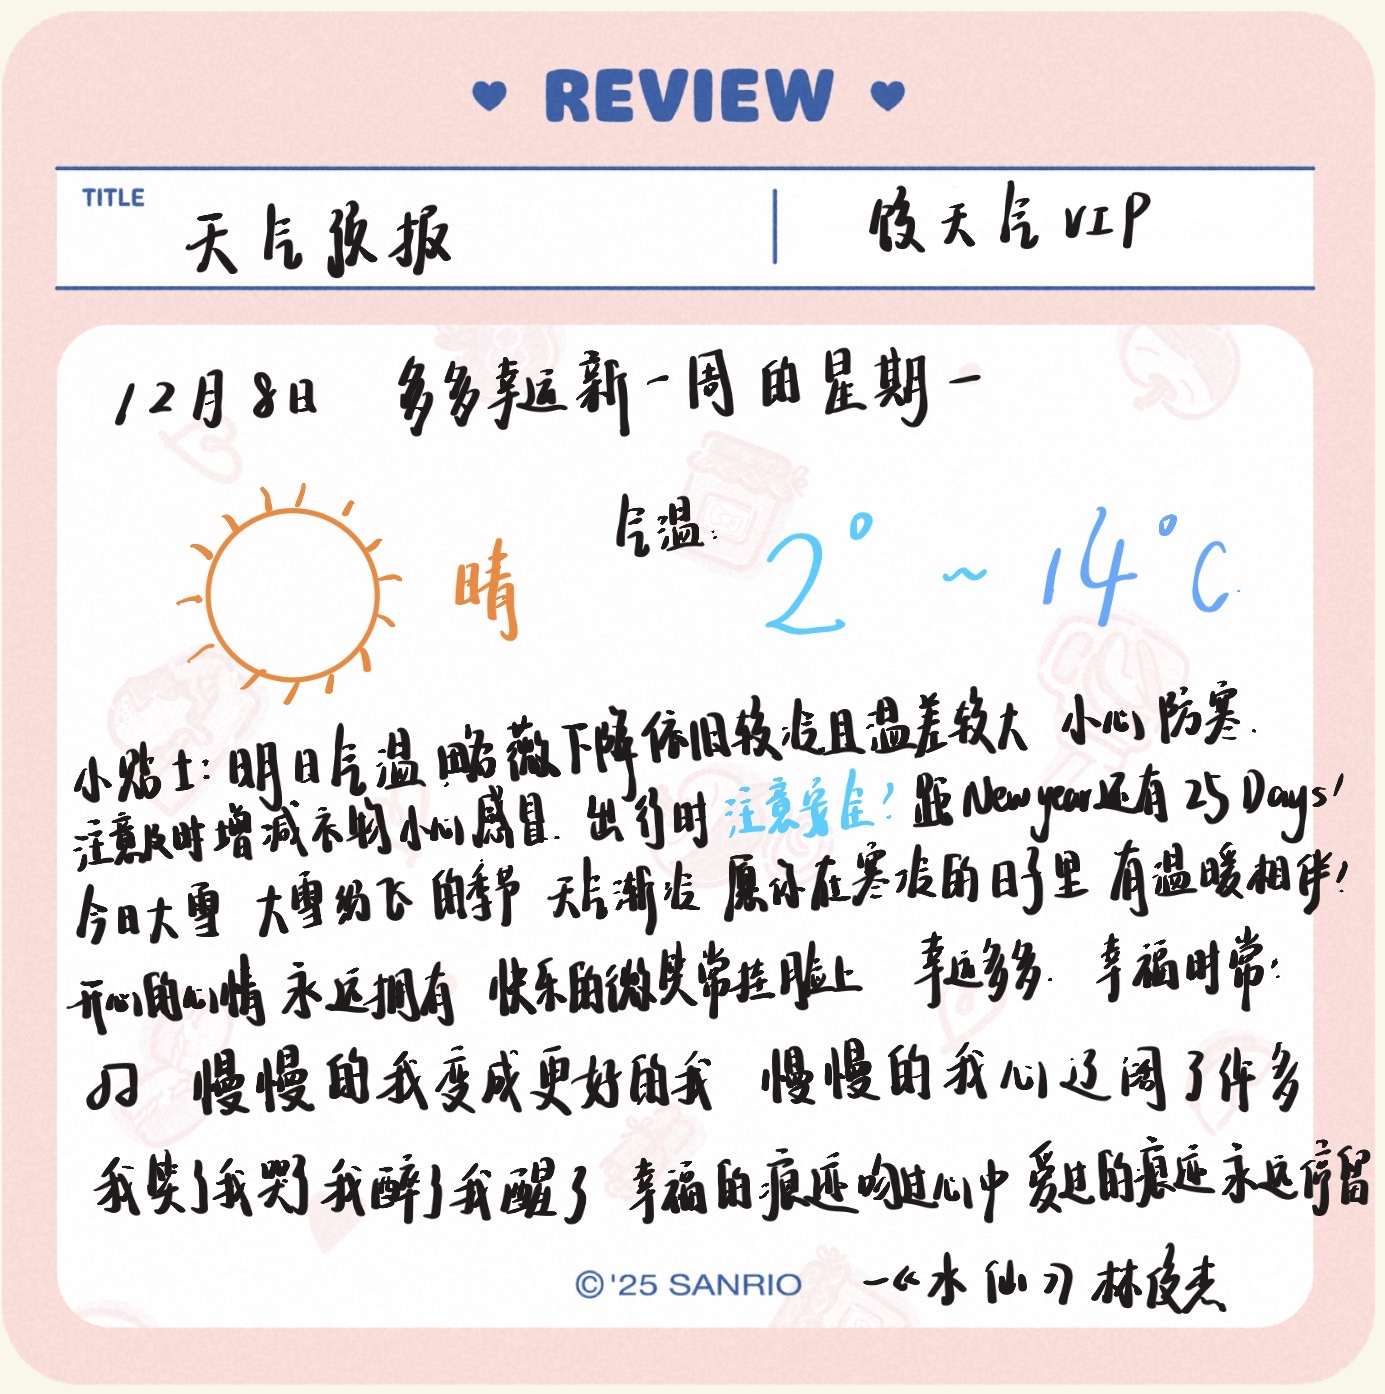 REVIEW
TITLE
天气预报
俊天气VIP
12月8日 多多幸运新一周的星期一
晴
气温:
2° ~ 14°C
小贴士: 明日气温略微下降依旧较冷且温差较大 小心防寒.
注意及时增减衣物小心感冒. 出行时注意安全! 距New year还有25 Days!
今日大雪 大雪纷飞的季节 天气渐冷 愿你在寒冷的日子里 有温暖相伴!
开心的心情 永远拥有 快乐的微笑常挂脸上 幸运多多. 幸福时常.
♫ 慢慢的我变成更好的我 慢慢的我心辽阔了许多
我笑了我哭了我醉了我醒了 幸福的痕迹吻过心中 爱过的痕迹永远停留
—《水仙》林俊杰
©'25 SANRIO